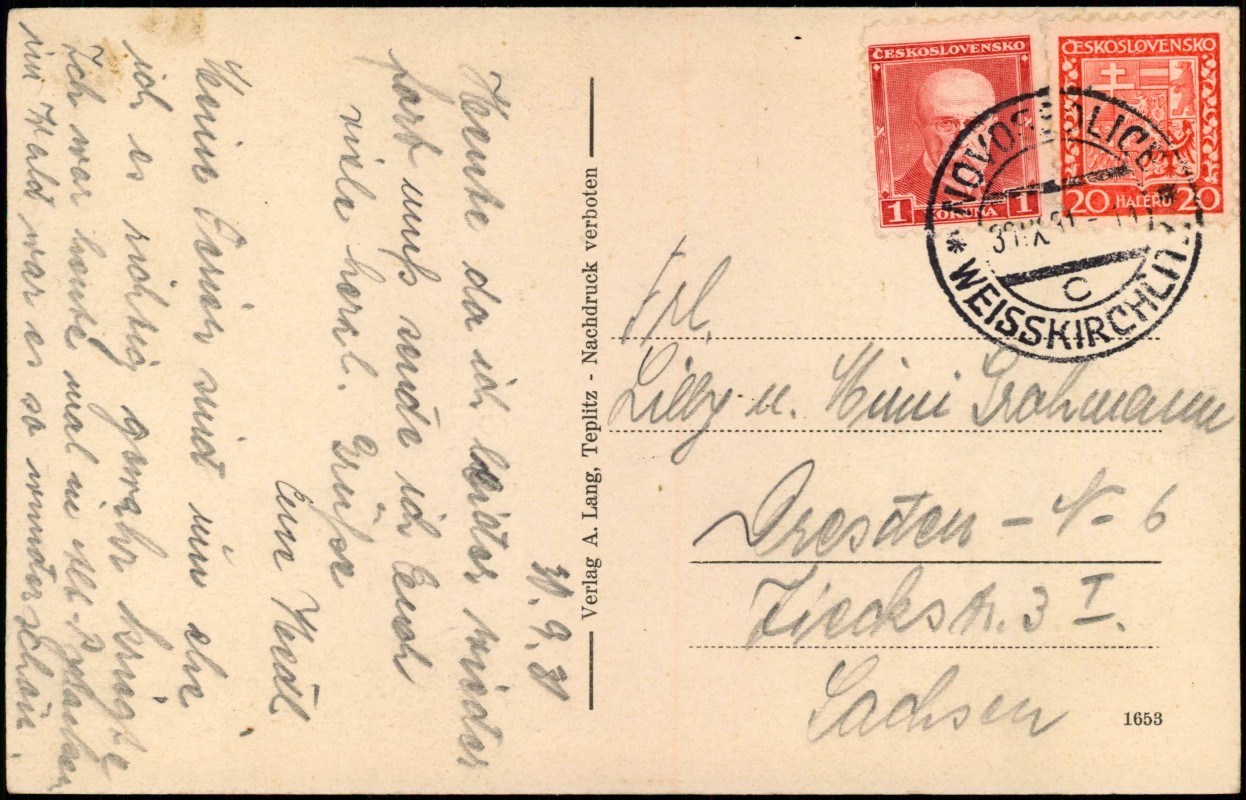 31. 9. 31
Heute da ich leider wieder
fort muß sende ich Euch
viele herzl. Grüße
Eure Hedl
Meine Ferien sind um ehe
ich es richtig gewahr kriegte
Ich war heute mal in Alt-
im Wald war es so wunderschön.
Verlag A. Lang, Teplitz - Nachdruck verboten
ČESKOSLOVENSKO
1 KORUNA 1
ČESKOSLOVENSKO
20 HALÉŘŮ 20
* NOVOSEDLICE *
WEISSKIRCHLITZ
c
Frl.
Lilly u. Mimi Grohmann
Dresden - N - 6
Tieckstr. 3 I.
Sachsen
1653